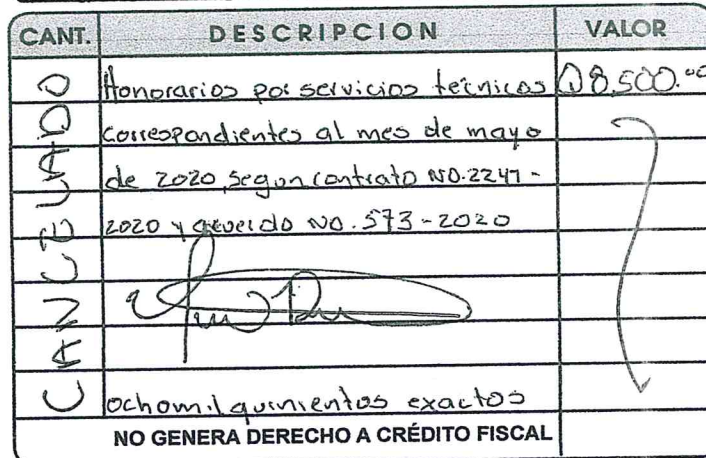 CANT. DESCRIPCION VALOR
CANCELADO
Honorarios por servicios técnicos Q8,500.00
correspondientes al mes de mayo
de 2020, segun contrato NO. 2247-
2020 y acuerdo NO. 573-2020
ochomil quinientos exactos
NO GENERA DERECHO A CRÉDITO FISCAL